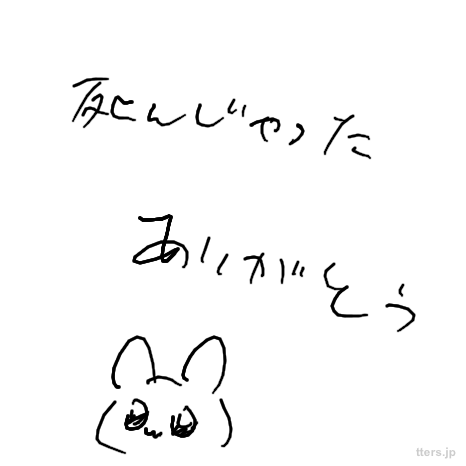 死んじゃった
ありがとう
tters.jp